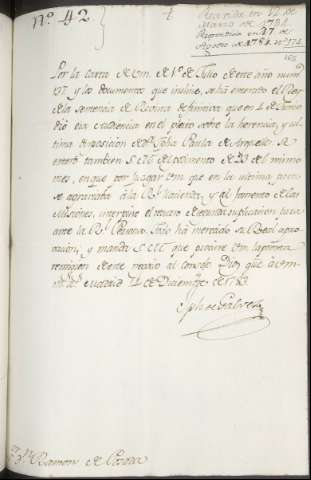 nº. 42
Recivida en 12 de
Marzo de 1784.
Respondida en 27 de
Agosto de 1784. nº 174.
Por la carta de vm. de 1º. de Julio de este año num.
137 y los documentos que incluie, se ha enterado el Rey
de la sentencia de Revista definitiva que en 4 de Junio
dió esa Audiencia en el pleito sobre la herencia, y ul
tima disposicion de Dª. Paula de
enteró tambien S.M. del de 23 del mismo
mes, en que por juzgar vm. que en la ultima
se agraviaba á la Rl. Hacienda, y al fomento de las
Misiones, interpuso el recurso de segunda suplicacion para
ante la Rl. Persona. Todo ha merecido su Real apro
bacion; y manda S.M. que vm. la
remision de este recurso al Consejo. Dios gue. á vm.
ms. as. Madrid 14 de Diciembre de 1783.
Jph de Galvez
Ramon de Posada